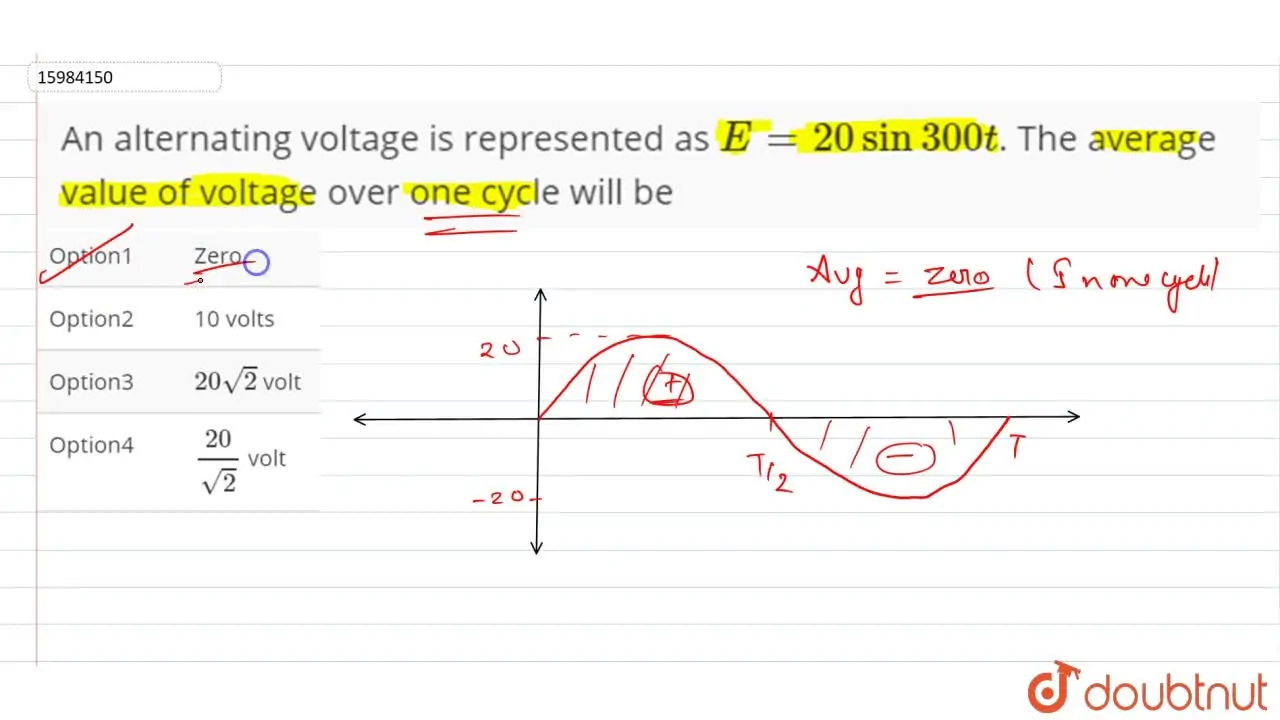 15984150
An alternating voltage is represented as E = 20 sin 300t. The average
value of voltage over one cycle will be
Option1 Zero
Option2 10 volts
Option3 20√2 volt
Option4 20/√2 volt
Avg = zero (In one cycle)
20
+
T/2
−
T
-20
doubtnut